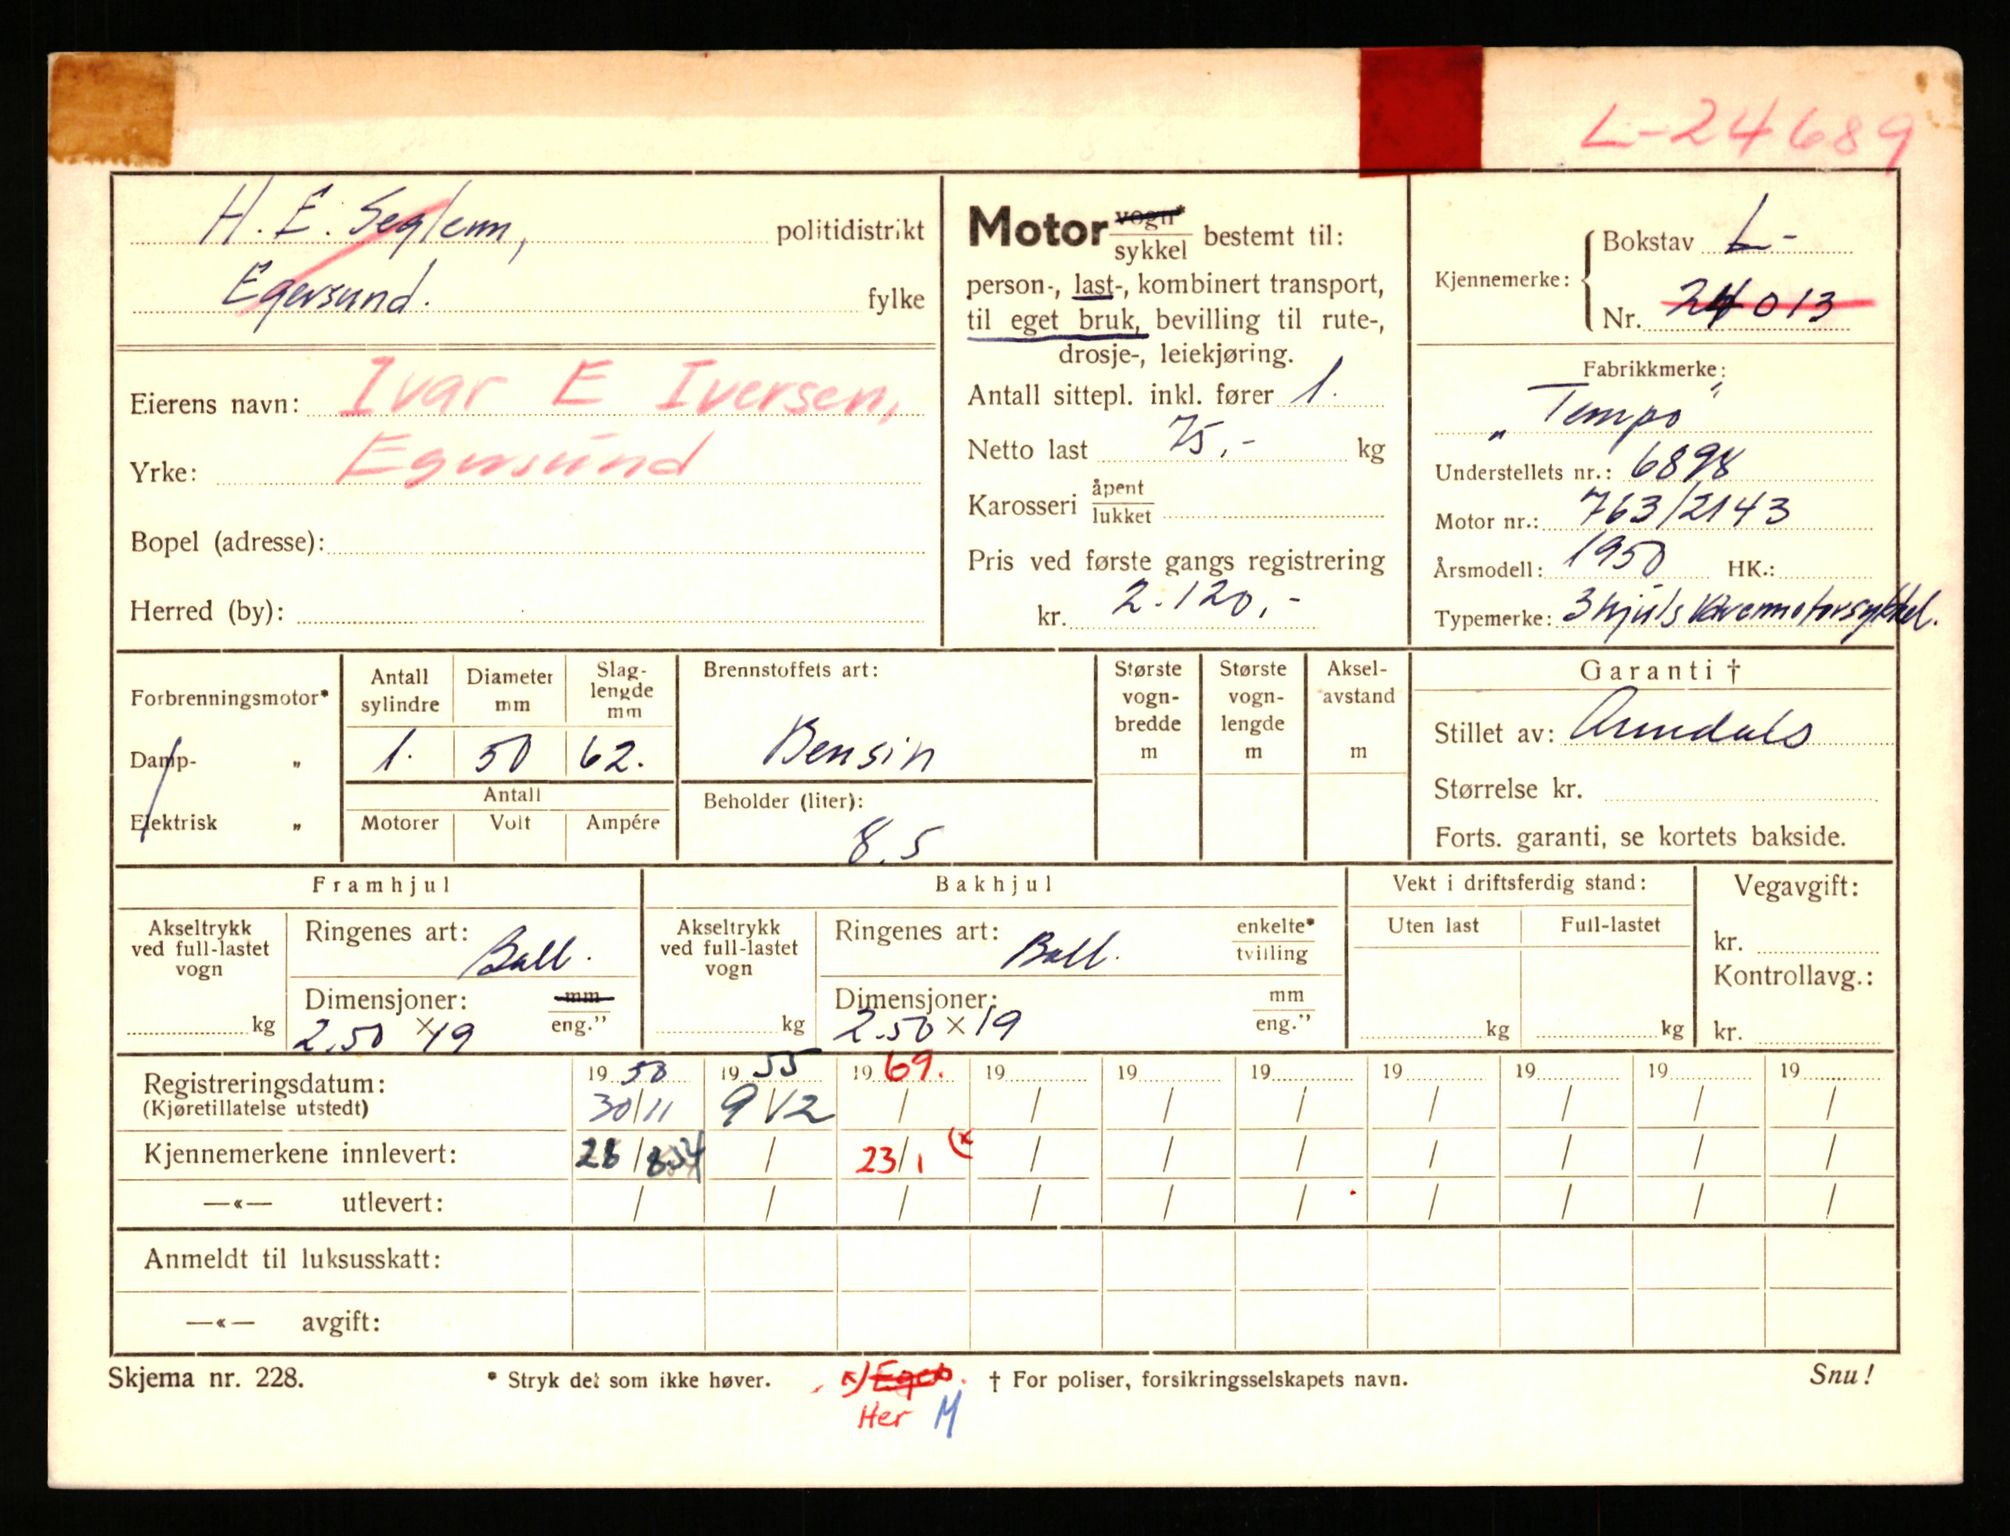 L-24689
H. E. Seglem, politidistrikt
Egersund. fylke
Eierens navn: Ivar E Iversen,
Yrke: Egersund
Bopel (adresse):
Herred (by):
Motor vogn* / sykkel bestemt til:
person-, last-, kombinert transport,
til eget bruk, bevilling til rute-,
drosje-, leiekjøring.
Antall sittepl. inkl. fører 1.
Netto last 75,- kg
Karosseri åpent / lukket
Pris ved første gangs registrering
kr. 2.120,-
Kjennemerke: Bokstav L-
Nr. 24013
Fabrikkmerke:
„Tempo"
Understellets nr.: 6898
Motor nr.: 763/2143
Årsmodell: 1950 HK.:
Typemerke: 3hjuls Varemotorsykkel.
Forbrenningsmotor*
Damp- „
Elektrisk „
Antall sylindre
Diameter mm
Slag-lengde mm
1. 50 62.
Antall
Motorer Volt Ampére
Brennstoffets art:
Bensin
Beholder (liter):
8.5
Største vogn-bredde m
Største vogn-lengde m
Aksel-avstand m
Garanti †
Stillet av: Arendals
Størrelse kr.
Forts. garanti, se kortets bakside.
Framhjul
Akseltrykk ved full-lastet vogn
kg
Ringenes art: Ball.
Dimensjoner: mm / eng."
2.50 x 19
Bakhjul
Akseltrykk ved full-lastet vogn
kg
Ringenes art: Ball. enkelte* / tvilling
Dimensjoner: mm / eng."
2.50 x 19
Vekt i driftsferdig stand:
Uten last Full-lastet
kg kg
Vegavgift:
kr.
Kontrollavg.:
kr.
Registreringsdatum: 19 50 19 55 19 69. 19 19 19 19 19 19 19
(Kjøretillatelse utstedt) 30/11 9/12 / / / / / / / /
Kjennemerkene innlevert: 28/8 54 / 23/1 (x / / / / / / /
—«— utlevert: / / / / / / / / / /
Anmeldt til luksusskatt:
—«— avgift:
Skjema nr. 228. * Stryk det som ikke høver. x) † For poliser, forsikringsselskapets navn. Snu!
Her M